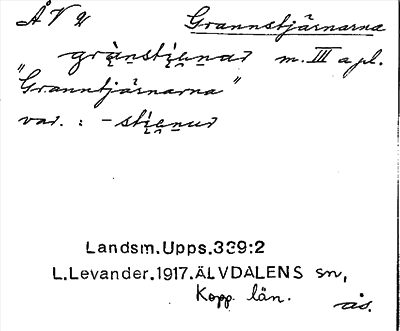 ÅVU Grannstjärnarna
grànstįęnar m. III a pl.
"Granntjärnarna"
var. : -stįęnar
Landsm.Upps.339:2
L.Levander.1917.ÄLVDALENS sn,
Kopp. län.
ås.